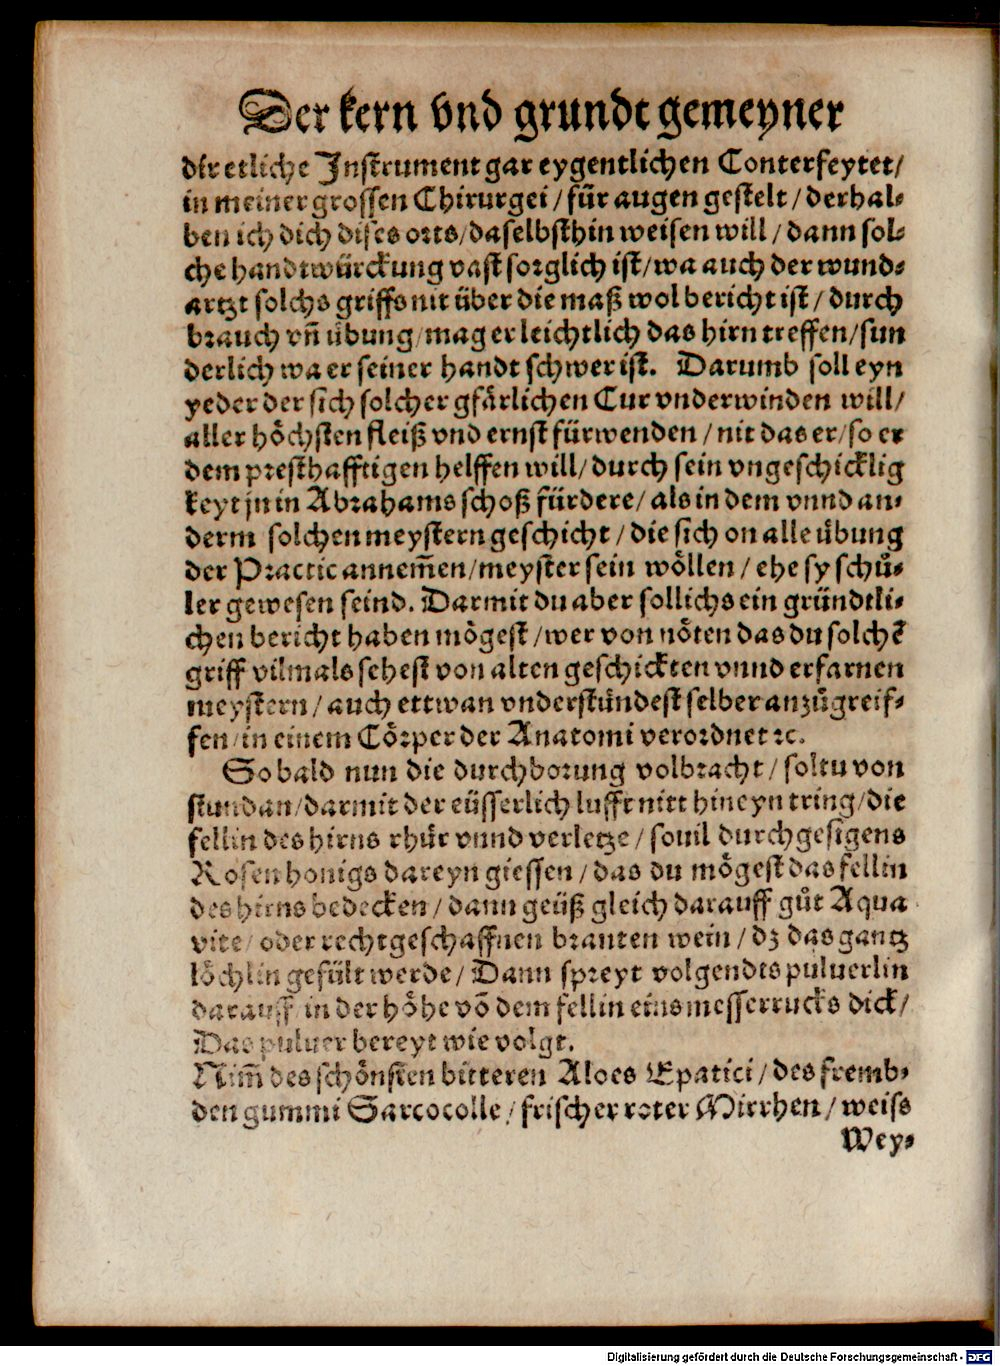 Der kern vnd grundt gemeyner
dir etliche Instrument gar eygentlichen Conterfeytet/
in meiner grossen Chirurgei / für augen gestelt / derhal⸗
ben ich dich dises orts/ daselbsthin weisen will / dann sol⸗
che handtwürckung vast sorglich ist/ wa auch der wund⸗
artzt solchs griffs nit über die maß wol bericht ist / durch
brauch vñ übung/ mag er leichtlich das hirn treffen/ sun
derlich wa er seiner handt schwer ist. Darumb soll eyn
yeder der sich solcher gfärlichen Cur vnderwinden will/
aller höchsten fleiß vnd ernst fürwenden / nit das er/ so er
dem presthafftigen helffen will/ durch sein vngeschicklig
keyt jn in Abrahams schoß fürdere/ als in dem vnnd an⸗
derm solchen meystern geschicht / die sich on alle übung
der Practic annem̃en/ meyster sein wöllen / ehe sy schuͦ⸗
ler gewesen seind. Darmit du aber sollichs ein gründtli⸗
chen bericht haben mögest / wer von nöten das du solchẽ
griff vilmals sehest von alten geschickten vnnd erfarnen
meystern / auch ettwan vnderstündest selber anzuͦgreif⸗
fen/ in einem Cörper der Anatomi verordnet ꝛc.
So bald nun die durchborung volbracht / soltu von
stundan/ darmit der eüsserlich lufft nitt hineyn tring/ die
fellin des hirns rhuͤr vnnd verletze / souil durchgesigens
Rosenhonigs dareyn giessen / das du mögest das fellin
des hirns bedecken / dann geüß gleich darauff guͦt Aqua
vite/ oder rechtgeschaffnen branten wein / dz das gantz
löchlin gefült werde/ Dann spreyt volgendts puluerlin
darauff/ in der höhe võ dem fellin eins messerrucks dick/
Das puluer bereyt wie volgt.
Nim̃ des schönsten bitteren Aloes Epatici / des fremb⸗
den gummi Sarcocolle / frischer roter Mirrhen / weiss
Wey⸗
Digitalisierung gefördert durch die Deutsche Forschungsgemeinschaft - DFG